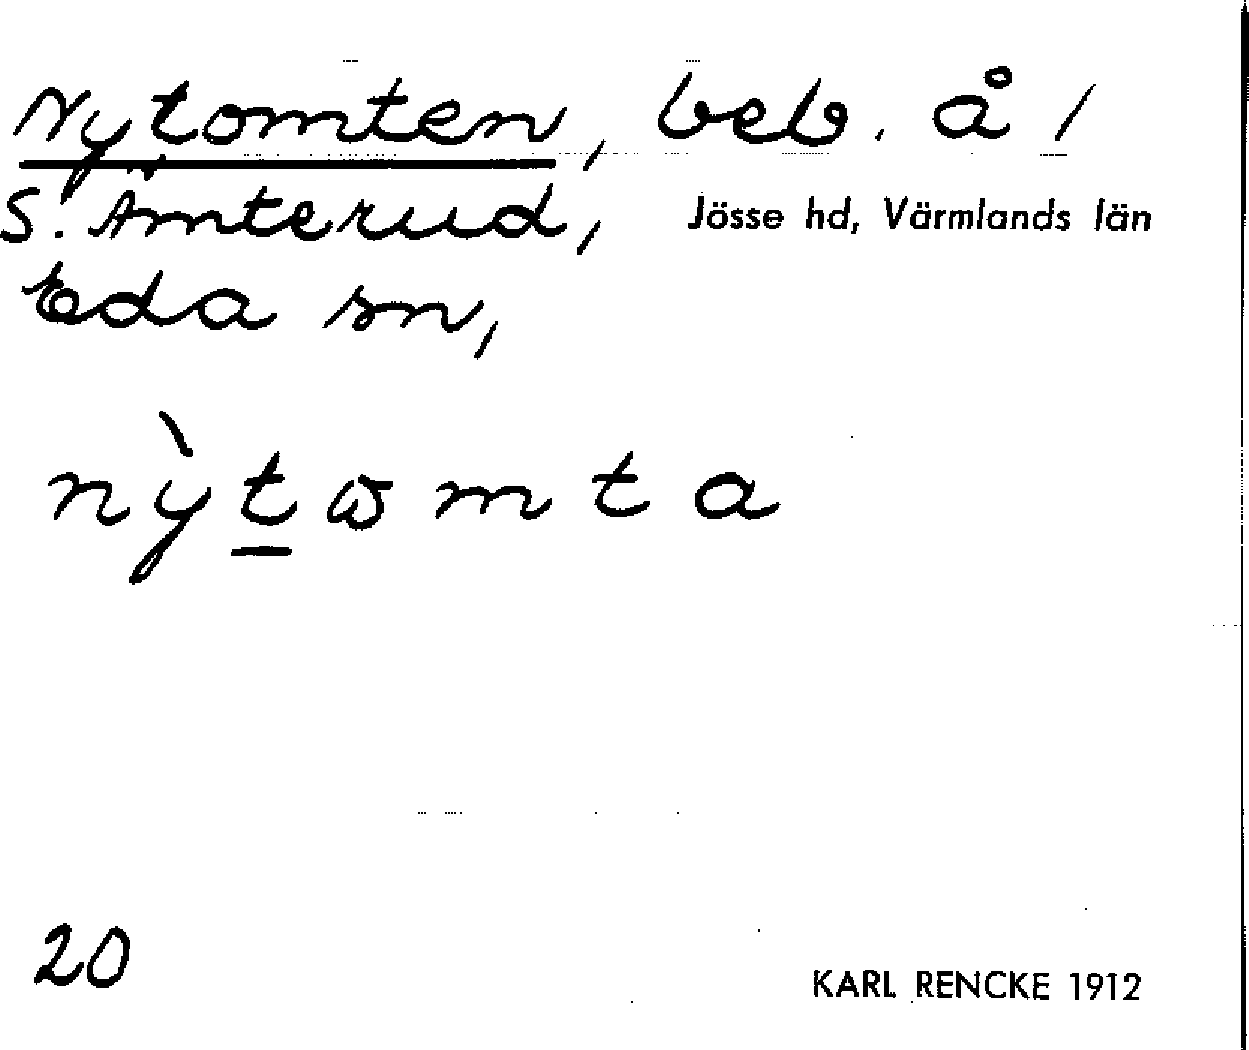 Nytomten, beb. å /
S. Ämterud, Jösse hd, Värmlands län
Eda sn,
nỳtωmta
20
KARL RENCKE 1912